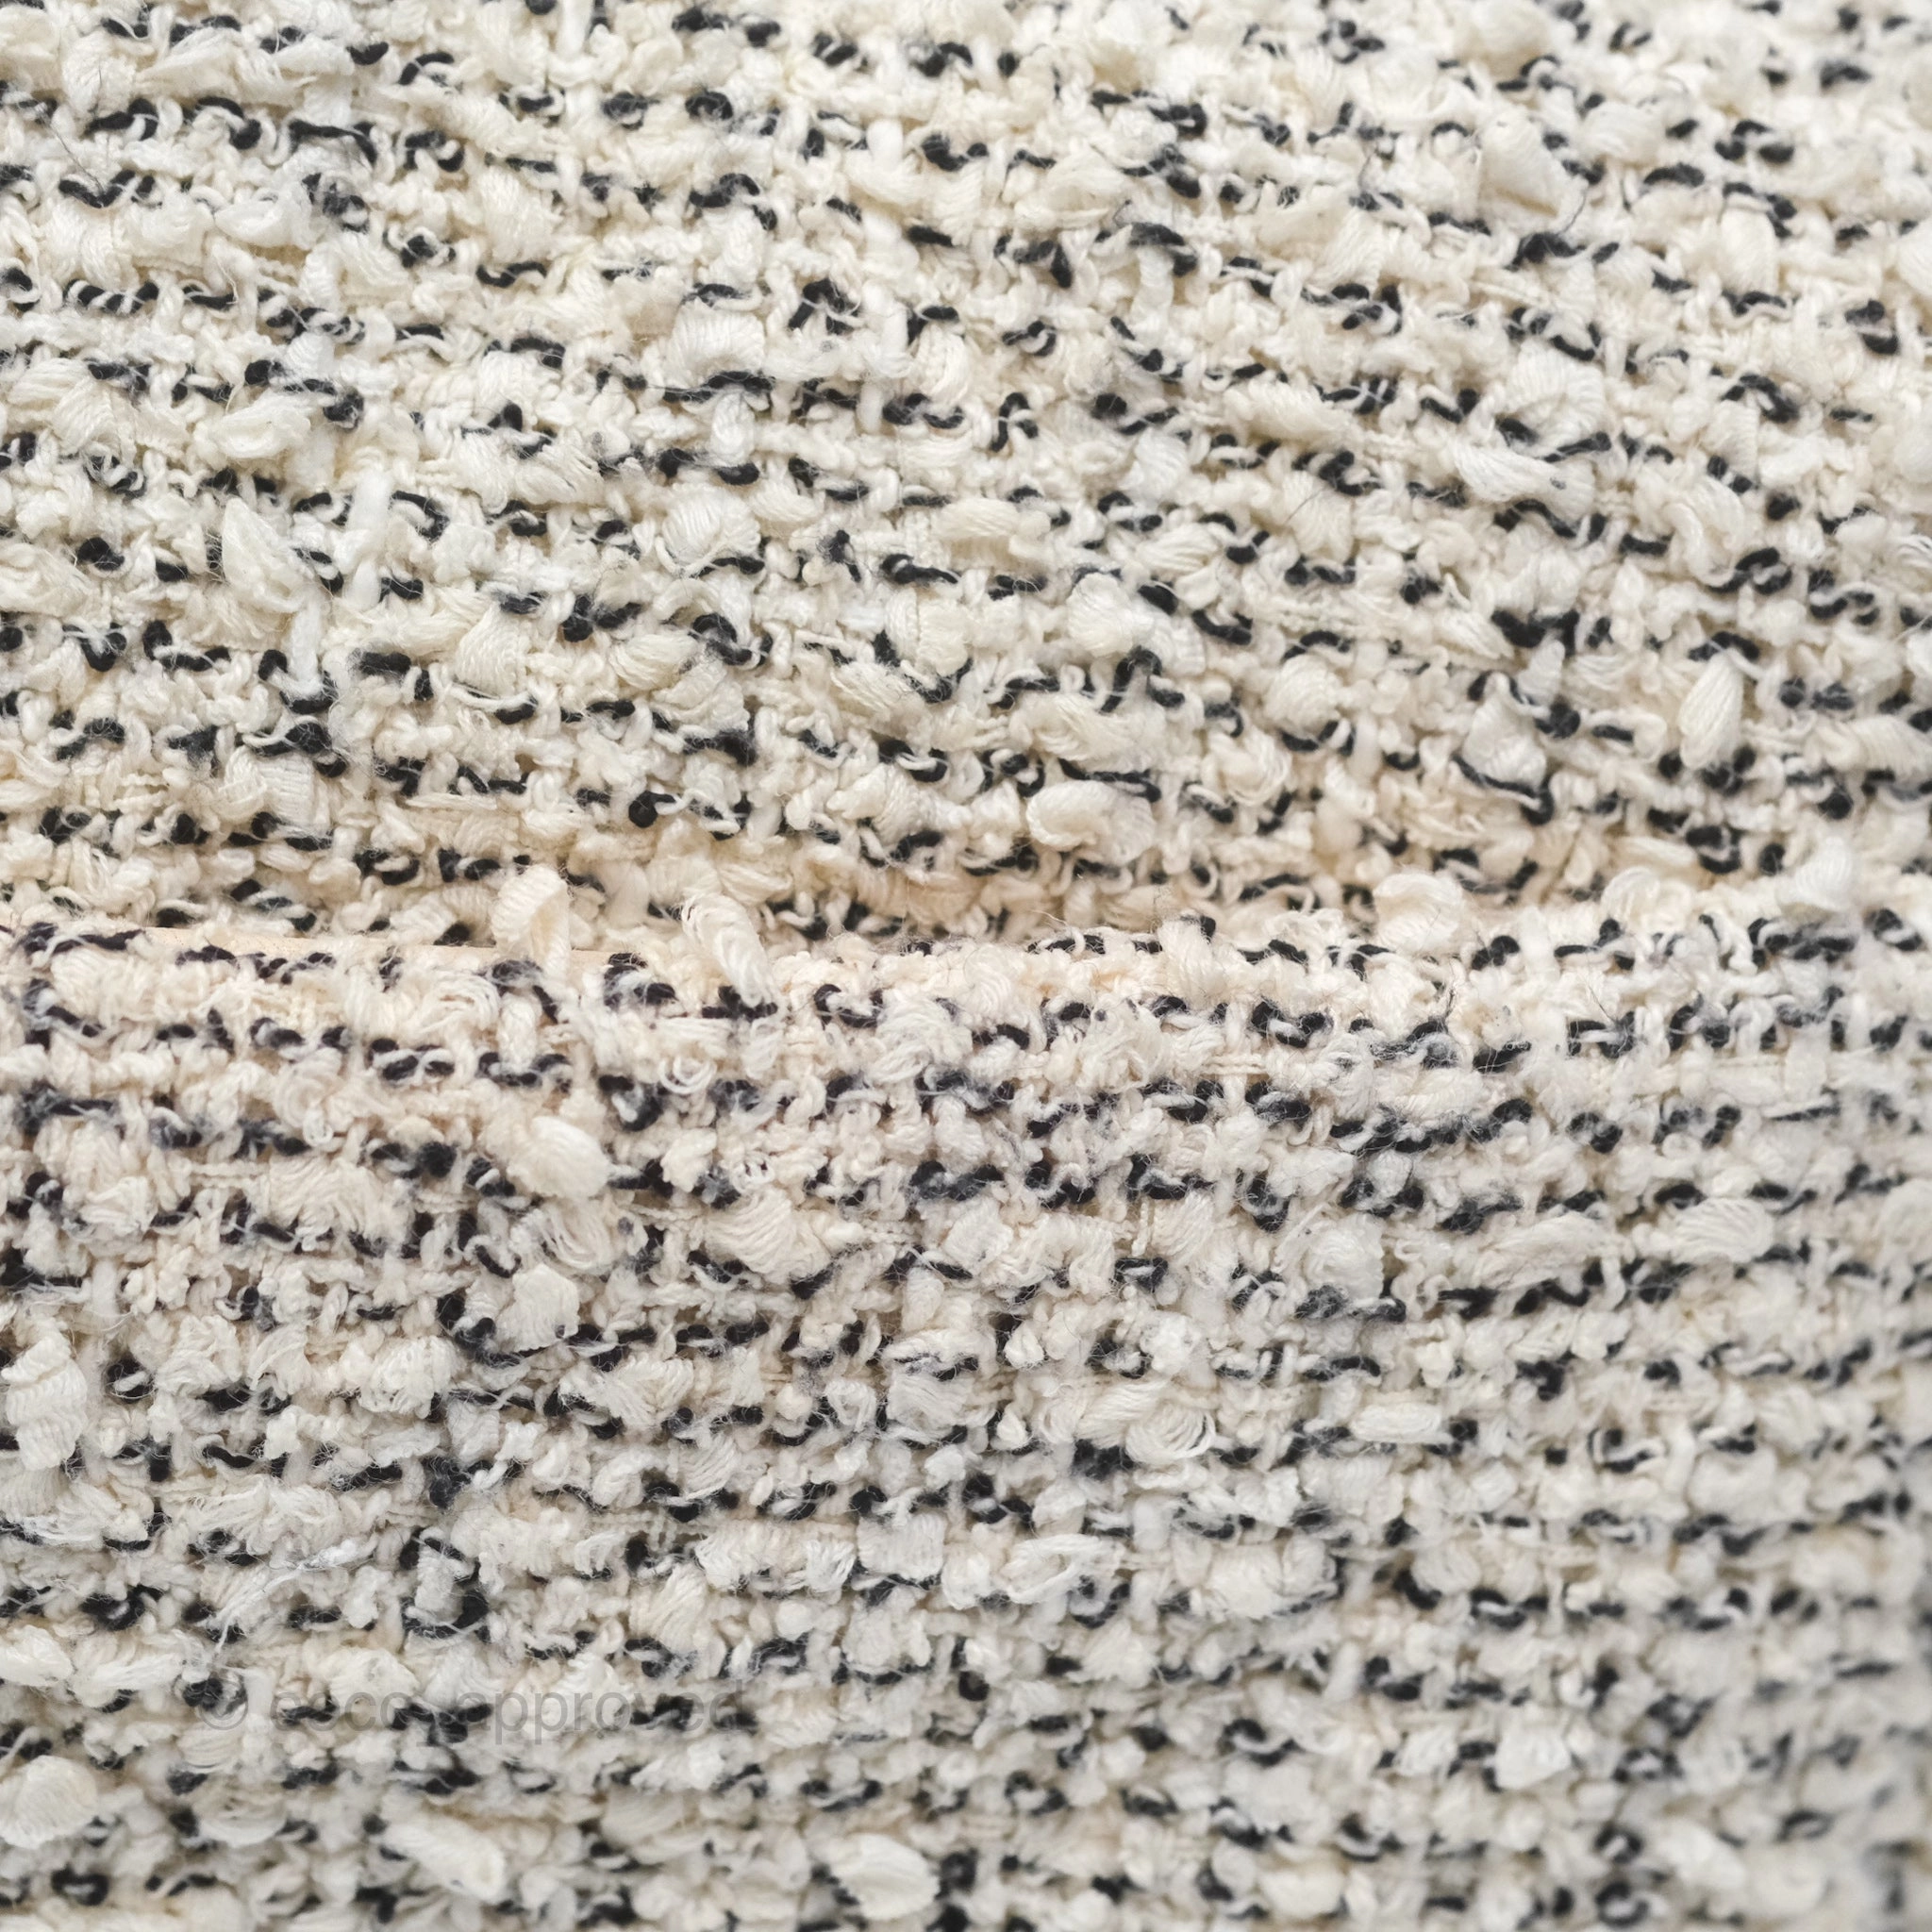 © cocoapproved